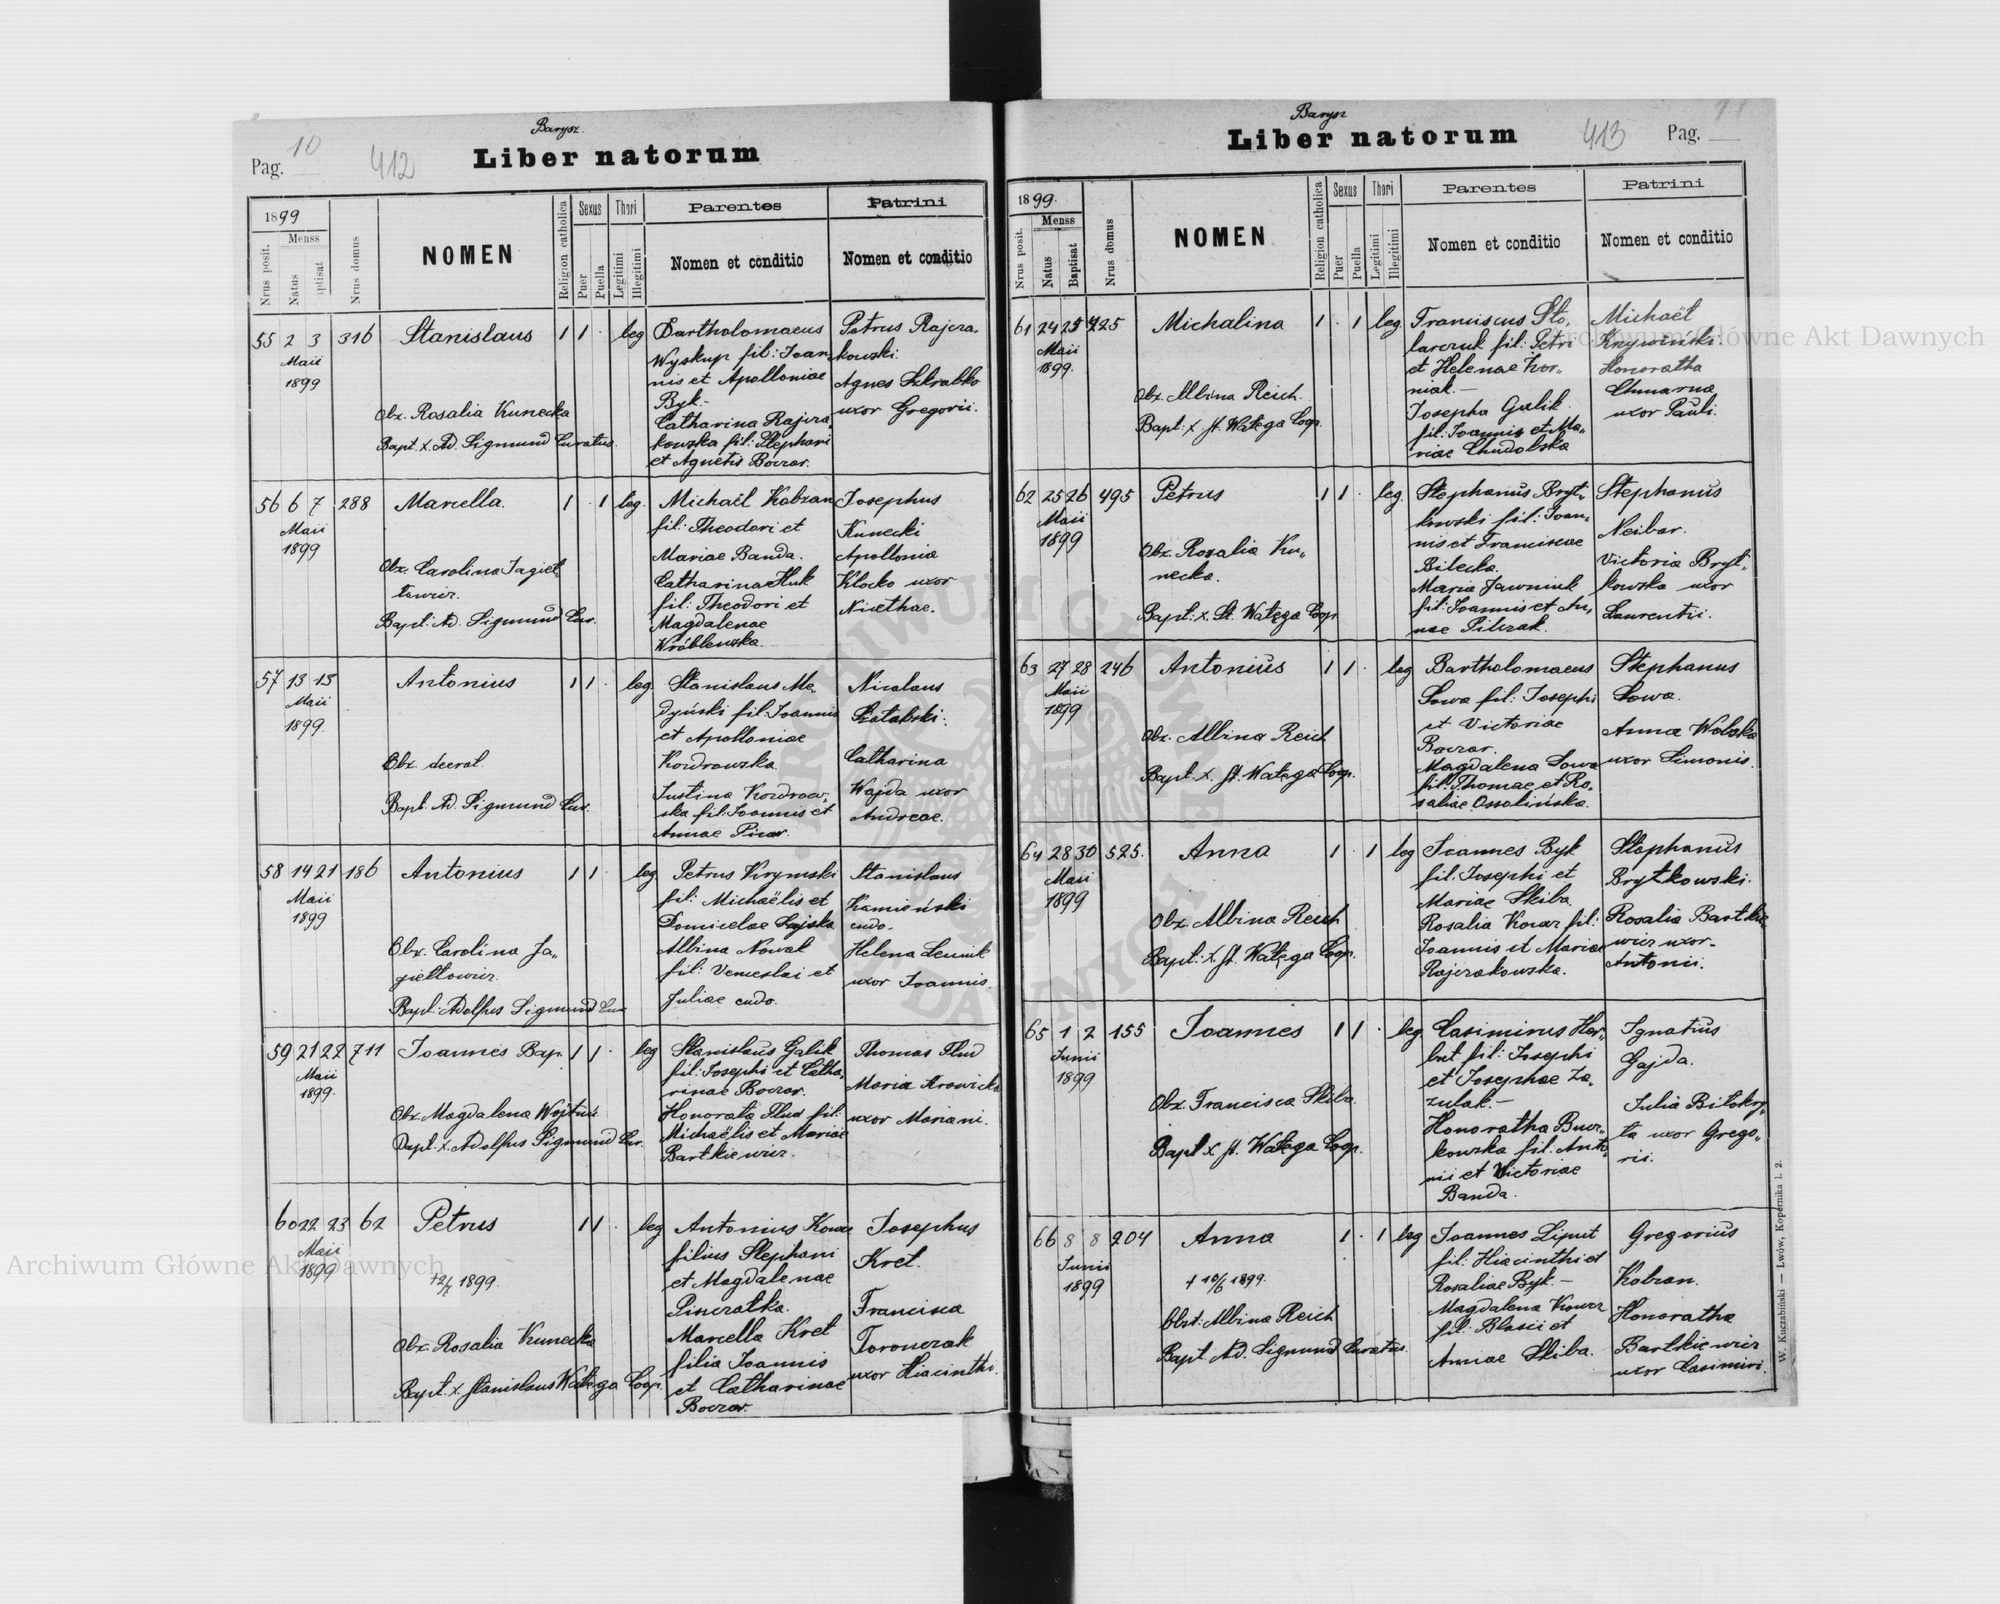 Barysz.
Pag. 10
412
Liber natorum
1899
Menss
Nrus posit.
Natus
aptisat
Nrus domus
NOMEN
Religion catholica
Sexus
Puer
Puella
Thori
Legitimi
Illegitimi
Parentes
Nomen et conditio
Patrini
Nomen et conditio
55 2 3 316 Stanislaus 1 1 . leg
Maii
1899
Obx. Rosalia Kunecka
Bapt. x. Ad. Sigmund Curatus.
Bartholomaeus
Wyskup fil: Joan,
nis et Apolloniae
Byk.-
Catharina Rajcza,
kowska fil: Stephani
et Agnetis Boczar.
Petrus Rajcza,
kowski.
Agnes Skrabko
uxor Gregorii.
56 6 7 288 Marcella. 1 . 1 leg.
Maii
1899
Obx. Carolina Jagieł,
łowicz.
Bapt: Ad. Sigmund Cur.
Michaël Kobzan
fil: Theodori et
Mariae Banda.
Catharina Huk
fil: Theodori et
Magdalenae
Wróblewska.
Josephus
Kunecki
Apollonia
Klocko uxor
Nicethae.
57 13 13 Antonius 1 1 . leg.
Maii
1899.
Obx. deerat.
Bapt. Ad. Sigmund Cur.
Stanislaus Me,
dyński fil: Joannis
et Apolloniae
Kordrowska.
Justina Kozdrow,
ska fil: Joannis et
Annae Picar.
Nicolaus
Szatabski.
Catharina
Wajda uxor
Andreae.
58 14 21 186 Antonius 1 1 leg
Maii
1899
Obx. Carolina Ja,,
giełłowicz.
Bapt: Adolfus Sigmund Cur
Petrus Krymski
fil: Michaëlis et
Domicelae
Albina Nowak
fil: Venceslai et
Juliae cudo.
Stanislaus
Kamieński
cudo.
Helena Leszak
uxor Joannis.
59 21 22 711 Joannes Bap. 1 1 . leg
Maii
1899.
Obx. Magdalena Wojtów
Bapt. x. Adolfus Sigmund Cur.
Stanislaus Galik
fil: Josephi et Catha,
rinae Boczar.
Honorata Flud fil:
Michaëlis et Mariae
Bartkiewicz.
Thomas Flud
Maria Krowicka
uxor Mariani.
60 22 23 62 Petrus 1 1 . leg
Maii
1899
1899.
Obx. Rosalia Kunecka
Bapt. x. Stanislaus Watęga Coop.
Antonius Kowcz
filius Stephani
et Magdalenae
Pisczatka.
Marcella Kret
filia Joannis
et Catharinae
Boczar.
Josephus
Kret.
Francisca
Toronczak
uxor Hiacinthi.
Barysz
Liber natorum
413
Pag. 11
1899.
Menss
Nrus posit.
Natus
Baptisat
Nrus domus
NOMEN
Religion catholica
Sexus
Puer
Puella
Thori
Legitimi
Illegitimi
Parentes
Nomen et conditio
Patrini
Nomen et conditio
61 24 25 725 Michalina 1 . 1 leg
Maii
1899.
Obx. Albina Reich.
Bapt: x St. Watęga Coop.
Franciscus Sto,
larczuk fil: Petri
et Helenae Kor,
niak.-
Josepha Galik
fil: Joannis et Ma,
riae Chudolska
Michaël
Krywiński.
Honoratha
Chmarna
uxor Pauli.
62 25 26 495 Petrus 1 1 . leg.
Maii
1899
Obx. Rosalia Ku,,
necka.
Bapt: x. St. Watęga Coop
Stephanus Bryt,
kowski fil: Joan,
nis et Franciscae
Bilecka.
Maria Jawniuk
fil: Joannis et An,
nae Pilczak.
Stephanus
Neibar.
Victoria Bryt,
kowska uxor
Laurentii.
63 27 28 246 Antonius 1 1 . leg
Maii
1899
Obx. Albina Reich
Bapt. x. St. Watęga Coop.
Bartholomaeus
Sowa fil: Josephi
et Victoriae
Boczar.
Magdalena Sowa
fil: Thomae et Ro,
saliae Ossolińska.
Stephanus
Sowa.
Anna Wolska
uxor Simonis.
64 28 30 525. Anna 1 . 1 leg
Maii
1899
Obx. Albina Reich
Bapt: x St. Watęga Coop.
Joannes Byk
fil: Josephi et
Mariae Skiba
Rosalia Kowcz fil:
Joannis et Mariae
Rajczakowska.
Stephanus
Brytkowski.
Rosalia Bartkie
wicz uxor
Antonii.
65 1 2 155 Joannes 1 1 . leg
Junii
1899
Obx. Francisca Skiba.
Bapt x St. Watęga Coop.
Casimirus Her,
but fil: Josephi
et Josephae Za,
zulak.-
Honoratha Bucz,
kowska fil: Anto,
nii et Victoriae
Banda.
Ignatius
Gajda.
Julia Bilokry,
ta uxor Grego,
rii.
66 8 8 204 Anna 1 . 1 leg
Junii
1899
+ 10/6 1899.
Obst. Albina Reich
Bapt. Ad. Sigmund Curatus.
Joannes Liput
fil: Hiacinthi et
Rosaliae Byk.-
Magdalena Kowcz
fil: Blasii et
Annae Skiba.
Gregorius
Kobzan.
Honoratha
Bartkiewicz
uxor Casimiri.
W. Kuczabiński — Lwów, Kopernika l. 2.
Archiwum Główne Akt Dawnych
Archiwum Główne Akt Dawnych
ARCHIWUM GŁÓWNE AKT DAWNYCH